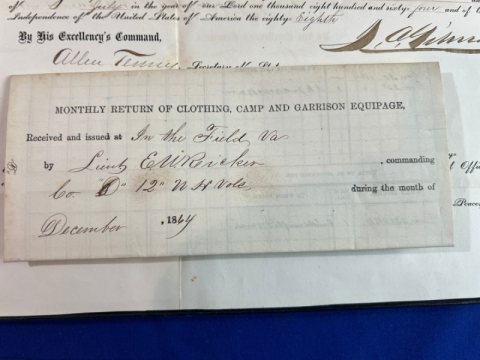 of July in the year of our Lord one thousand eight hundred and sixty four and of
Independence of the United States of America the eighty Eighth
By His Excellency's Command,
Allen Tenny, Secretary
MONTHLY RETURN OF CLOTHING, CAMP AND GARRISON EQUIPAGE,
Received and issued at In the Field, Va
by Lieut E W Ricker , commanding
Co. "D" 12" N H Vols during the month of
December , 1864